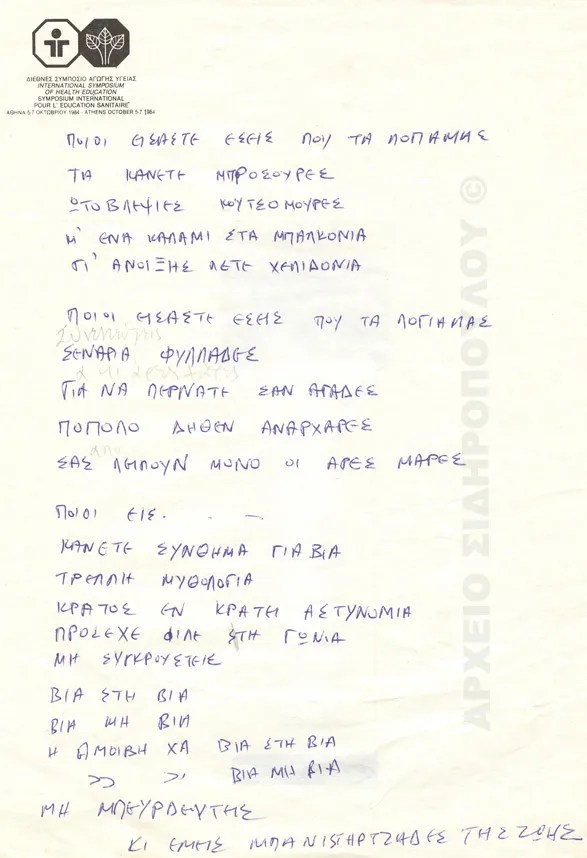 ΔΙΕΘΝΕΣ ΣΥΜΠΟΣΙΟ ΑΓΩΓΗΣ ΥΓΕΙΑΣ
INTERNATIONAL SYMPOSIUM
OF HEALTH EDUCATION
SYMPOSIUM INTERNATIONAL
POUR L' EDUCATION SANITAIRE
ΑΘΗΝΑ 5-7 ΟΚΤΩΒΡΙΟΥ 1984 - ATHENS OCTOBER 5-7 1984
ΠΟΙΟΙ ΕΙΣΑΣΤΕ ΕΣΕΙΣ ΠΟΥ ΤΑ ΛΟΓΙΑ ΜΑΣ
ΤΑ ΚΑΝΕΤΕ ΜΠΡΟΣΟΥΡΕΣ
ΚΟΥΤΣΟΜΟΥΡΕΣ
Μ' ΕΝΑ ΚΑΛΑΜΙ ΣΤΑ ΜΠΑΛΚΟΝΙΑ
ΓΙ' ΑΝΟΙΞΗΣ ΛΕΤΕ ΧΕΛΙΔΟΝΙΑ
ΠΟΙΟΙ ΕΙΣΑΣΤΕ ΕΣΕΙΣ ΠΟΥ ΤΑ ΛΟΓΙΑ ΜΑΣ
ΣΕΝΑΡΙΑ ΦΥΛΛΑΔΕΣ
ΓΙΑ ΝΑ ΠΕΡΝΑΤΕ ΣΑΝ ΑΓΑΔΕΣ
ΠΟΠΟΛΟ ΔΗΘΕΝ ΑΝΑΡΧΑΡΕΣ
απο
ΣΑΣ ΛΕΙΠΟΥΝ ΜΟΝΟ ΟΙ ΑΡΕΣ ΜΑΡΕΣ
ΠΟΙΟΙ ΕΙΣ. . —
ΚΑΝΕΤΕ ΣΥΝΘΗΜΑ ΓΙΑ ΒΙΑ
ΤΡΕΛΛΗ ΜΥΘΟΛΟΓΙΑ
ΚΡΑΤΟΣ ΕΝ ΚΡΑΤΕΙ ΑΣΤΥΝΟΜΙΑ
ΠΡΟΣΕΧΕ ΦΙΛΕ ΣΤΗ ΓΩΝΙΑ
ΜΗ ΣΥΓΚΡΟΥΣΤΕΙΣ
ΒΙΑ ΣΤΗ ΒΙΑ
ΒΙΑ ΜΗ ΒΙΑ
Η ΑΜΟΙΒΗ ΧΑ ΒΙΑ ΣΤΗ ΒΙΑ
>> >> ΒΙΑ ΜΗ ΒΙΑ
ΜΗ ΜΠΕΥΡΔΕΥΤΗΣ
ΚΙ ΕΜΕΙΣ ΜΠΑΝΙΣΤΗΡΤΖΙΔΕΣ ΤΗΣ ΖΩΗΣ
ΑΡΧΕΙΟ ΣΙΔΗΡΟΠΟΥΛΟΥ ©